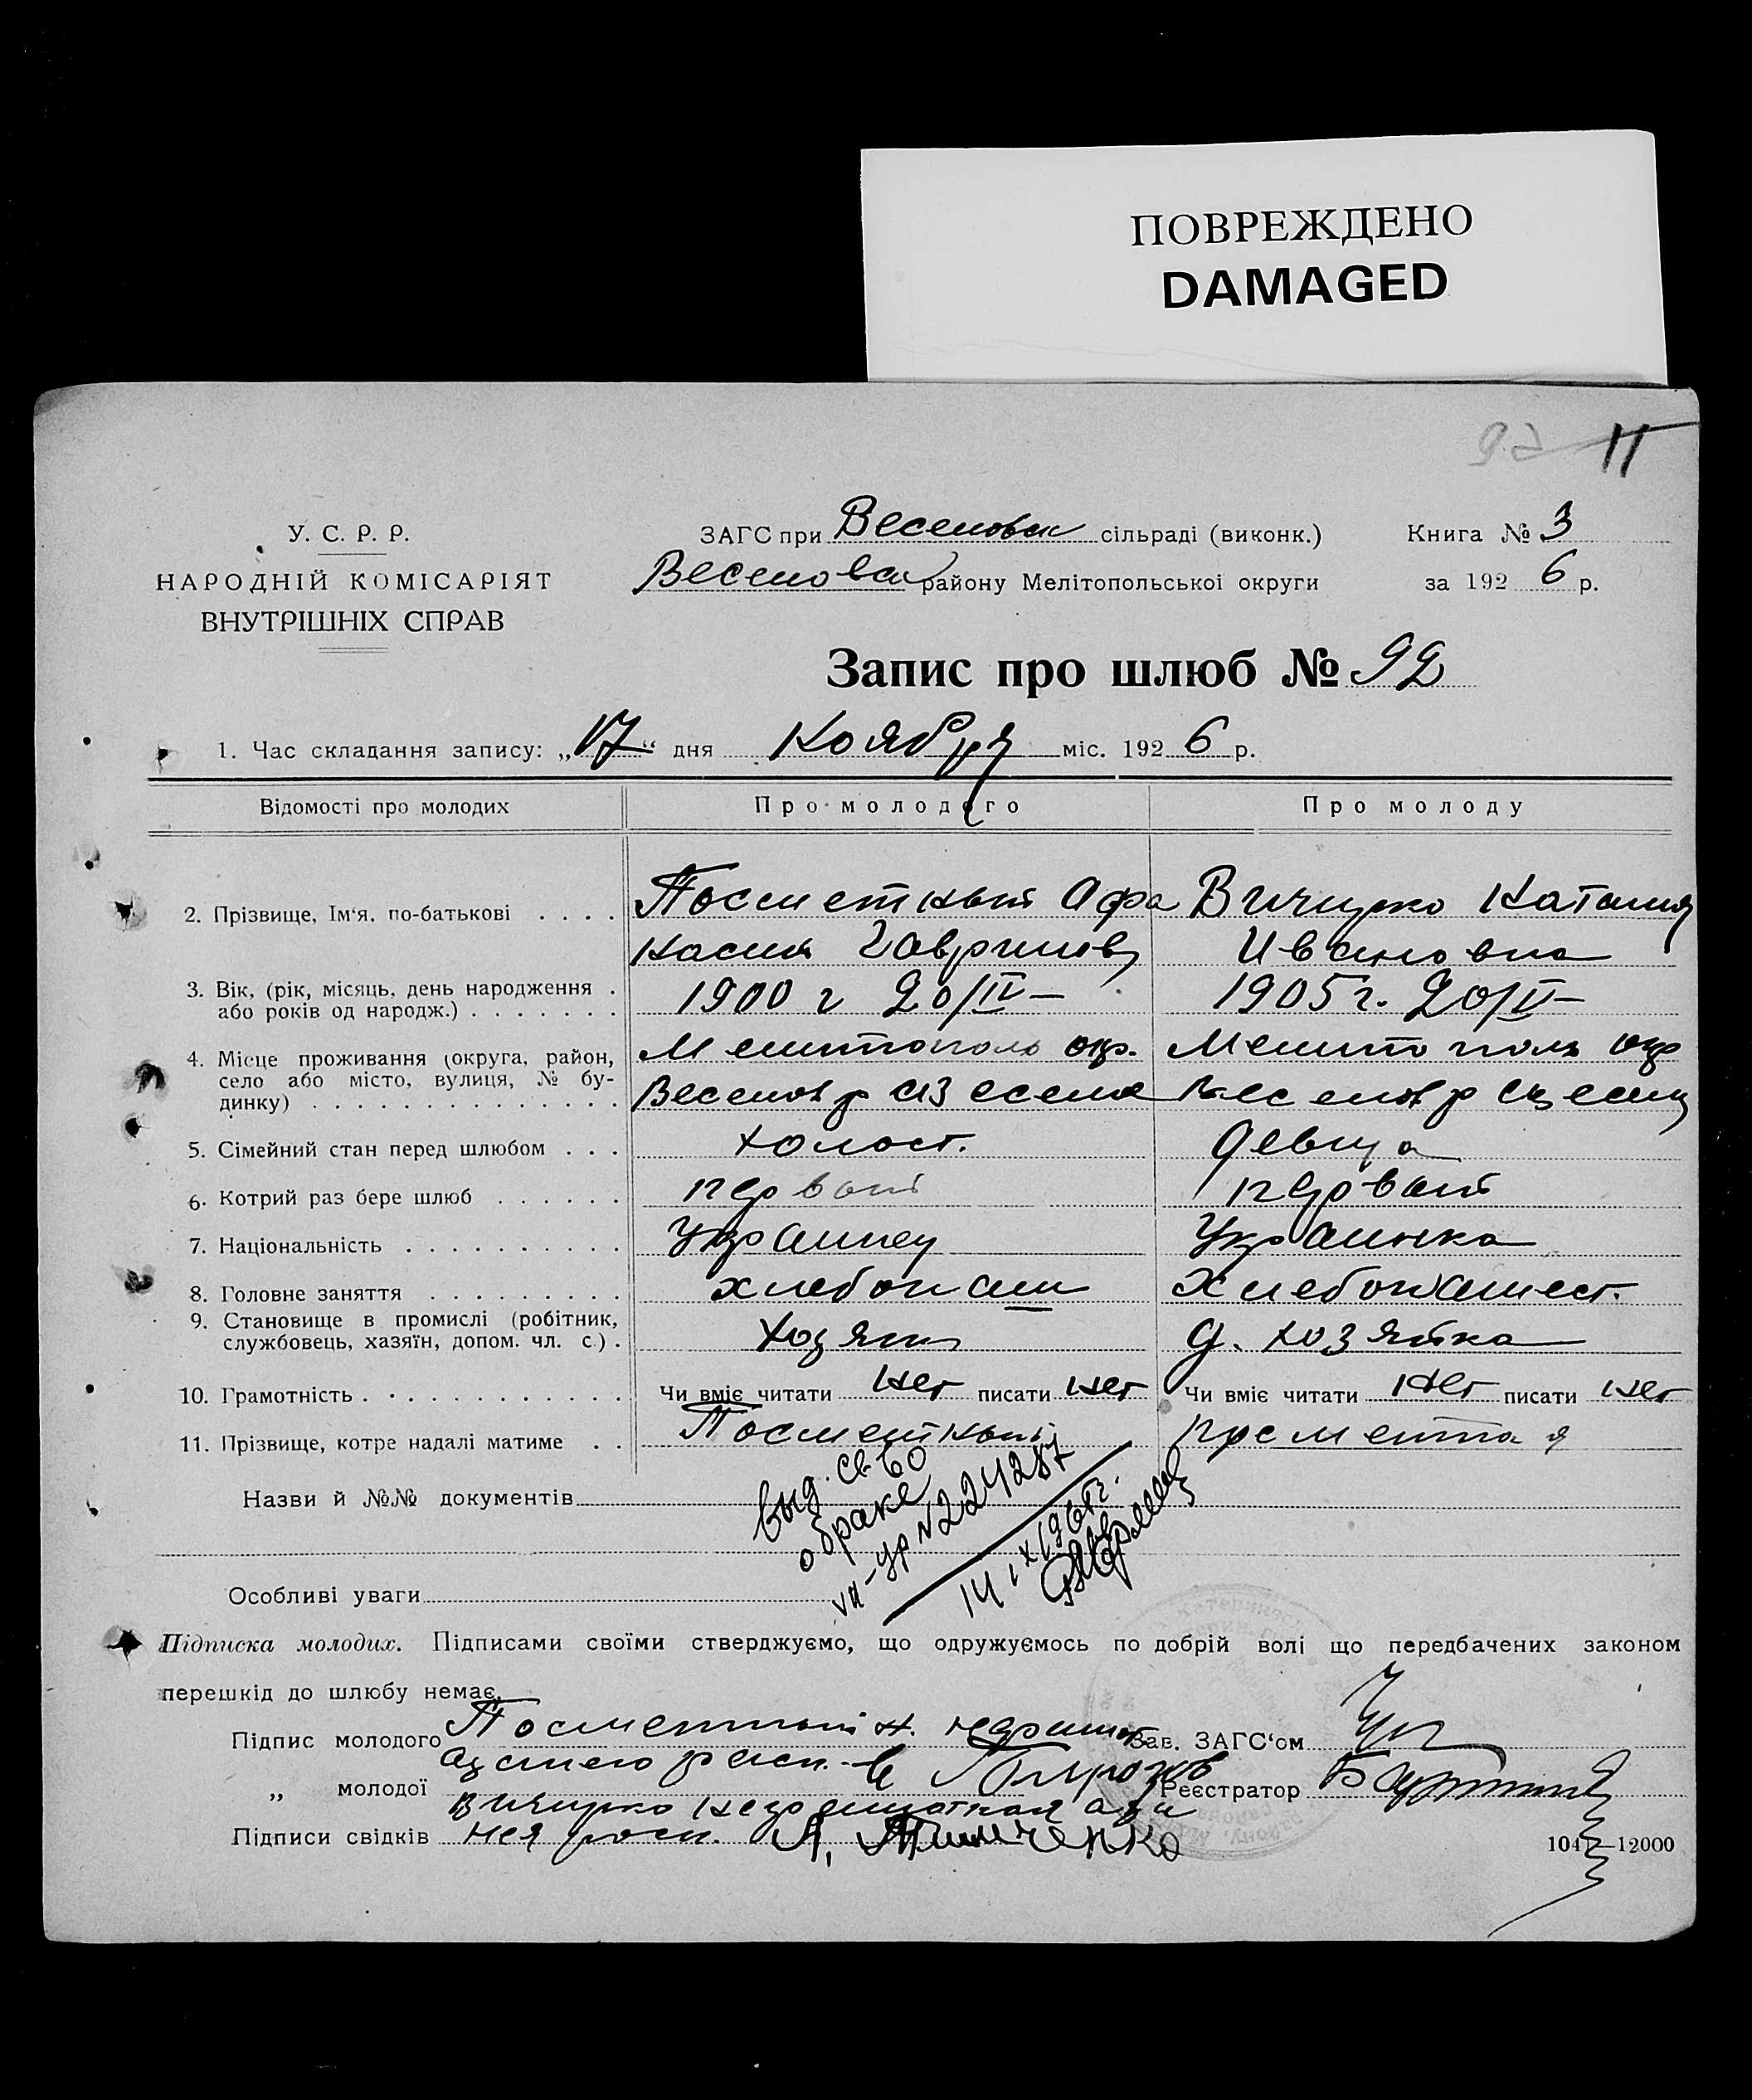 ПОВРЕЖДЕНО
DAMAGED
92 11
У. С. Р. Р.
НАРОДНІЙ КОМІСАРІЯТ
ВНУТРІШНІХ СПРАВ
ЗАГС при Веселовск сільраді (виконк.) Книга № 3
Веселовск району Мелітопольської округи за 1926 р.
Запис про шлюб № 92
1. Час складання запису: „17“ дня Ноября міс. 1926 р.
Відомості про молодих Про молодого Про молоду
2. Прізвище, Ім'я, по-батькові . . . . Посметный Афа Вичирко Наталия
насия Гаврилов Ивановна
3. Вік, (рік, місяць, день народження . 1900 г 20/IV– 1905 г. 20/V–
або років од народж.) . . . . . . .
4. Місце проживання (округа, район, Мелитополь окр. Мелитополь окр
село або місто, вулиця, № бу- Веселов р
динку) . . . . . . . . . . . . . . Веселов р
5. Сімейний стан перед шлюбом . . . холост. девица
6. Котрий раз бере шлюб . . . . . . первый первый
7. Національність . . . . . . . . . . Украинец Украинка
8. Головне заняття . . . . . . . . . хлебопаш Хлебопашест.
9. Становище в промислі (робітник,
службовець, хазяїн, допом. чл. с.) . хозяин д. хозяйка
10. Грамотність . . . . . . . . . . . . Чи вміє читати нет писати нет Чи вміє читати нет писати нет
11. Прізвище, котре надалі матиме . . Посметный Посметная
Назви й №№ документів
Выд. св-во
о браке
№ 224287
14/IX 1965 г.
Особливі уваги
Підписка молодих. Підписами своїми стверджуємо, що одружуємось по добрій волі що передбачених законом
перешкід до шлюбу немає.
Підпис молодого Посметный Зав. ЗАГС'ом
„ молодої Реєстратор
Вичирко
Підписи свідків нея росп. А. Тимченко
104 —12000